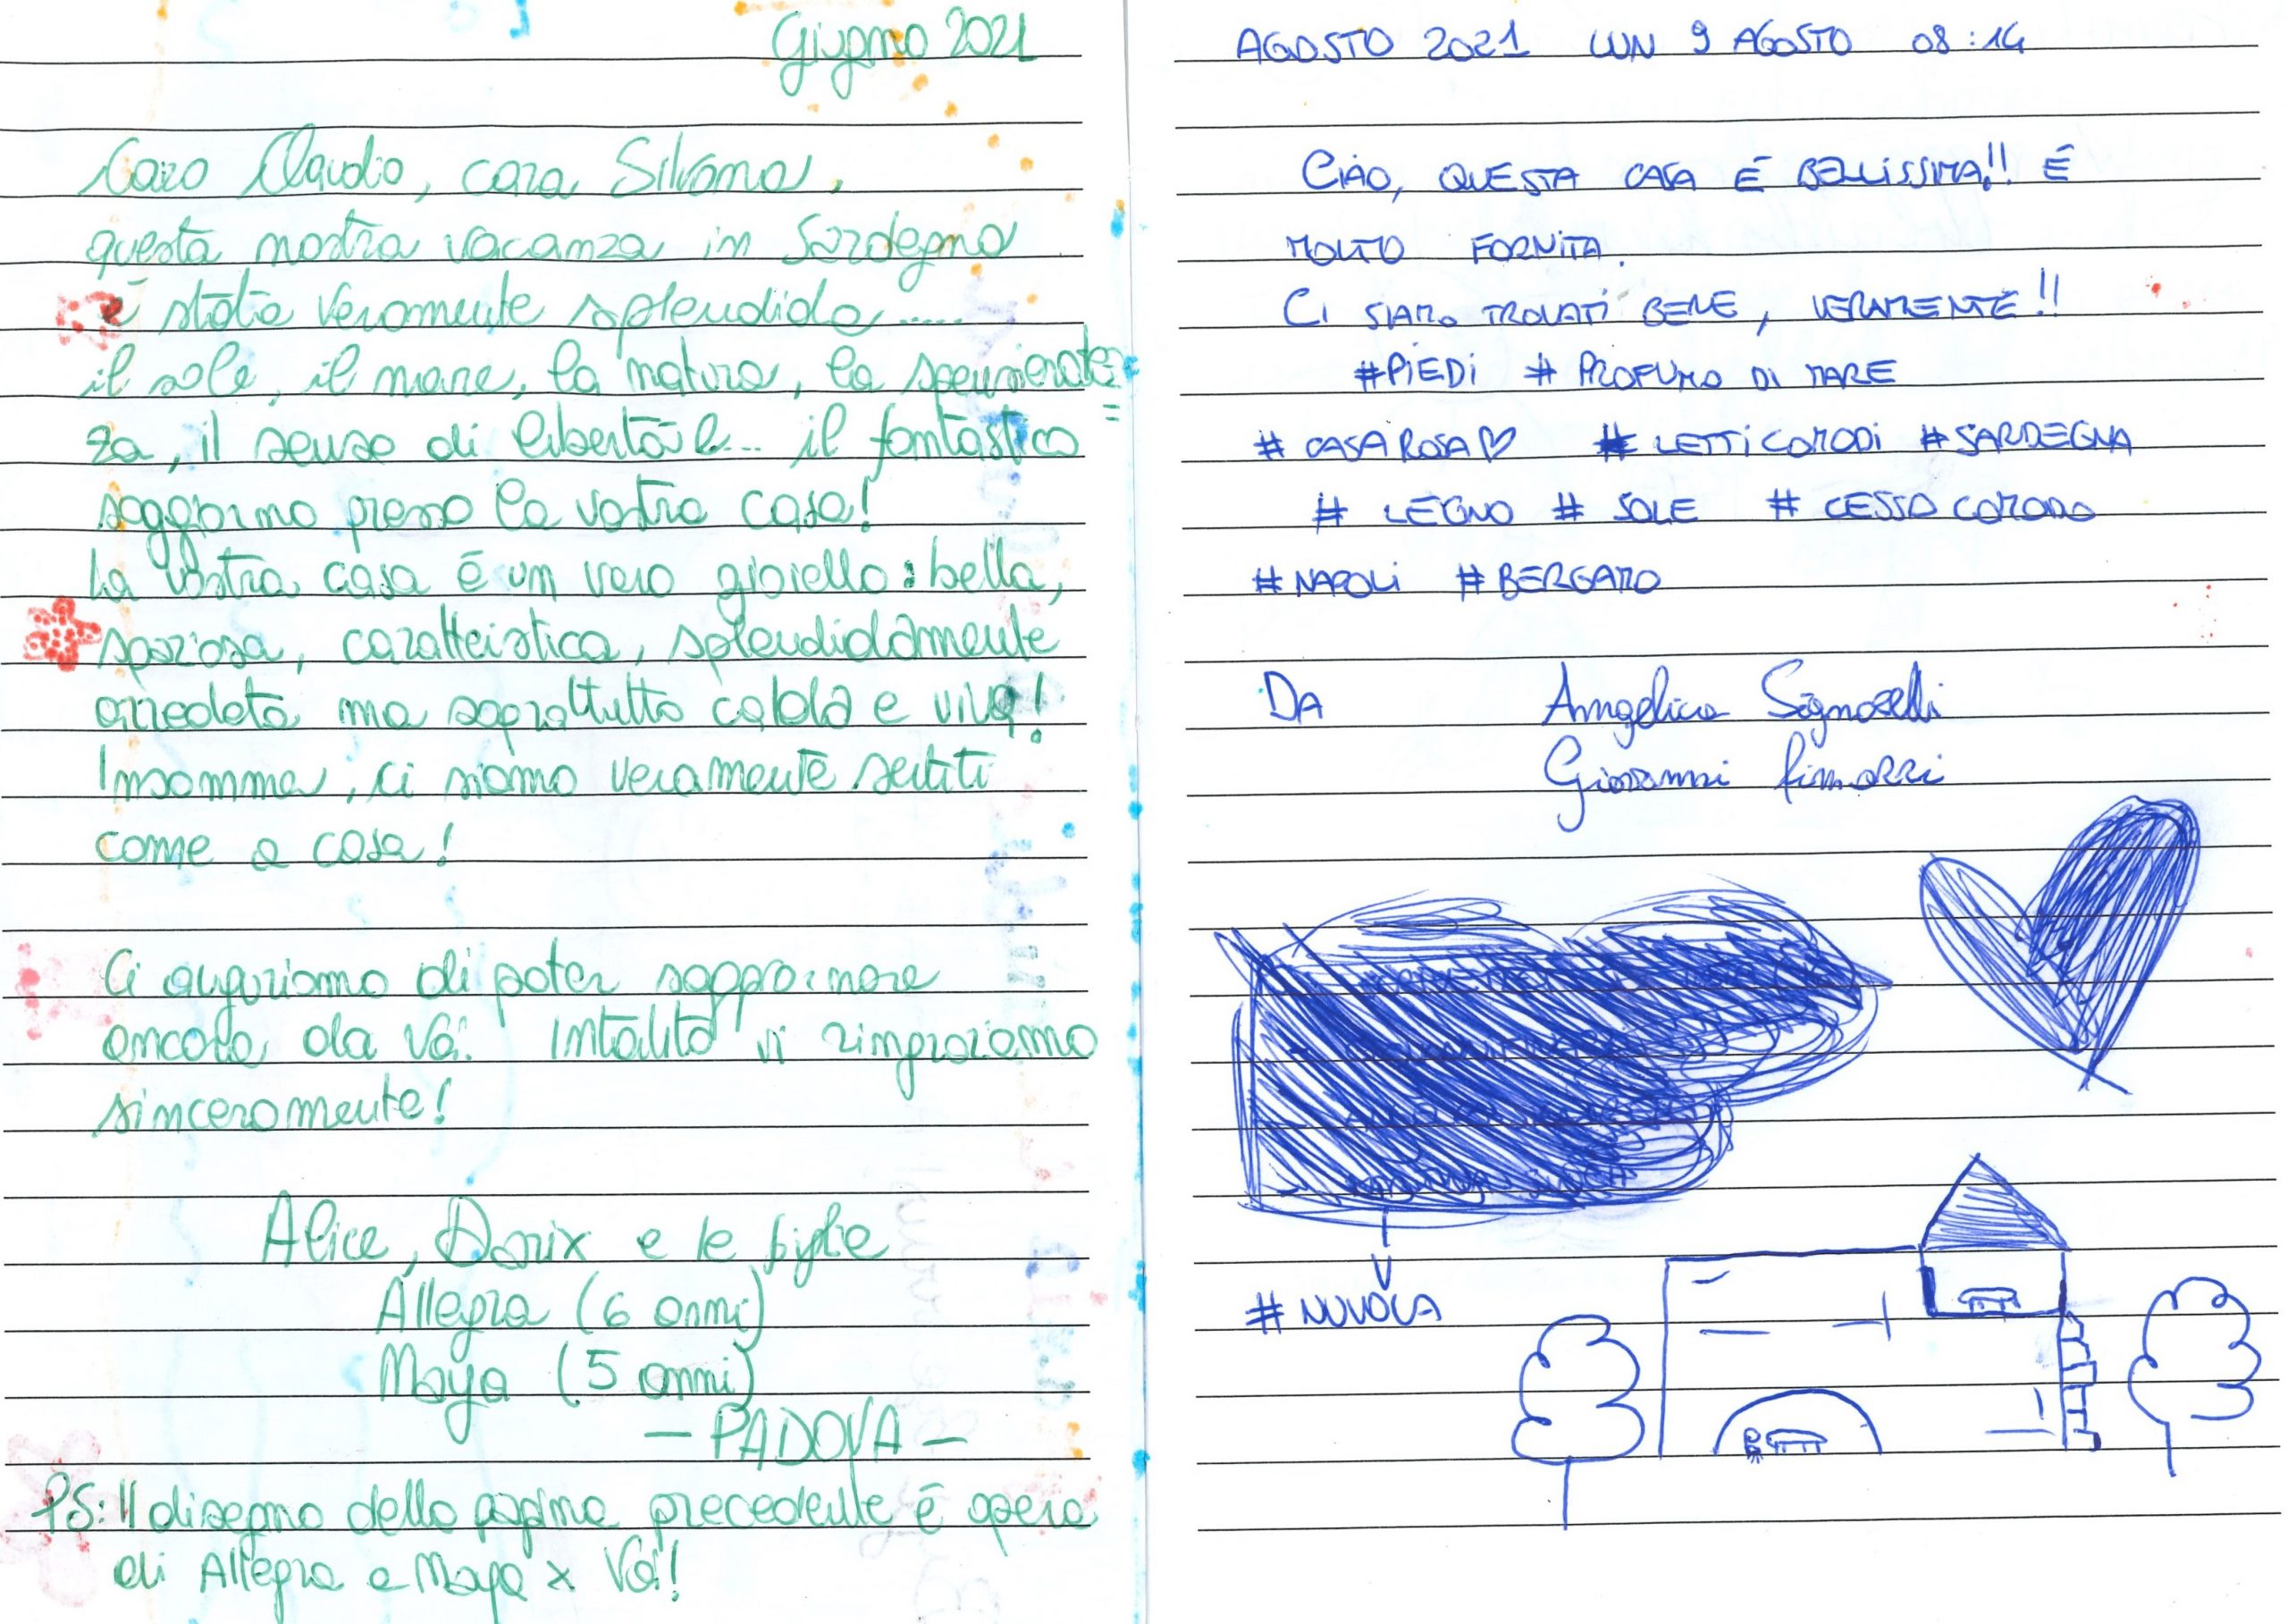 Giugno 2021
Caro Claudio, cara Silvana,
questa nostra vacanza in Sardegna
è stata veramente splendida.....
il sole, il mare, la natura, la spensieratez=
za, il senso di libertà e... il fantastico
soggiorno presso la vostra casa!
La vostra casa è un vero gioiello: bella,
spaziosa, caratteristica, splendidamente
arredata ma soprattutto calda e viva!
Insomma, ci siamo veramente sentiti
come a casa!
Ci auguriamo di poter soggiornare
ancora da Voi. Intanto vi ringraziamo
sinceramente!
Alice, Denix e le figlie
Allegra (6 anni)
Maya (5 anni)
- PADOVA -
PS: Il disegno della pagina precedente è opera
di Allegra e Maya x Voi!
AGOSTO 2021 LUN 9 AGOSTO 08:14
CIAO, QUESTA CASA È BELLISSIMA!! È
MOLTO FORNITA.
CI SIAMO TROVATI BENE, VERAMENTE!!
#PIEDI # PROFUMO DI MARE
# CASA ROSA♡ # LETTI COMODI # SARDEGNA
# LEGNO # SOLE # CESSO COMODO
# NAPOLI # BERGAMO
DA Angelica Signorelli
Giovanni
# NUVOLA